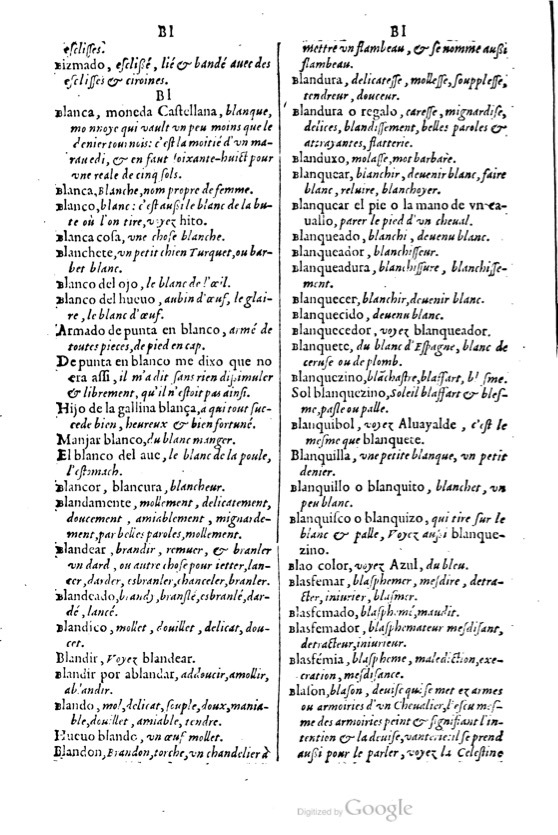 BI
esclisses.
Bizmado, esclissé, lié & bandé auec des
esclisses & ciroines.
BI
Blanca, moneda Castellana, blanque,
monnoye qui vault vn peu moins que le
denier tournois: c'est la moitié d'vn ma-
rauedi, & en faut soixante-huict pour
vne reale de cinq sols.
Blanca, Blanche, nom propre de femme.
Blanco, blanc: c'est aussi le blanc de la bu-
te où l'on tire, voyez hito.
Blanca cosa, vne chose blanche.
Blanchete, vn petit chien Turquet, ou bar-
bet blanc.
Blanco del ojo, le blanc de l'œil.
Blanco del hueuo, aubin d'œuf, le glai-
re, le blanc d'œuf.
Armado de punta en blanco, armé de
toutes pieces, de pied en cap.
De punta en blanco me dixo que no
era assi, il m'a dit sans rien dissimuler
& librement, qu'il n'estoit pas ainsi.
Hijo de la gallina blança, a qui tout suc-
cede bien, heureux & bien fortuné.
Manjar blanco, du blanc manger.
El blanco del aue, le blanc de la poule,
l'estomach.
Blancor, blancura, blancheur.
Blandamente, mollement, delicatement,
doucement, amiablement, mignarde-
ment, par belles paroles, mollement.
Blandear, brandir, remuer, & branler
vn dard, ou autre chose pour ietter, lan-
cer, darder, esbranler, chanceler, branler.
Blandeado, brandy, branslé, esbranlé, dar-
dé, lancé.
Blandico, mollet, douillet, delicat, dou-
cet.
Blandir, Voyez blandear.
Blandir por ablandar, addoucir, amollir,
ablandir.
Blando, mol, delicat, souple, doux, mania-
ble, douillet, amiable, tendre.
Hueuo blando, vn œuf mollet.
Blandon, Brandon, torche, vn chandelier à
BI
mettre vn flambeau, & se nomme aussi
flambeau.
Blandura, delicatesse, mollesse, soupplesse,
tendreur, douceur.
Blandura o regalo, caresse, mignardise,
delices, blandissement, belles paroles &
attrayantes, flatterie.
Blanduxo, molasse, mot barbare.
Blanquear, blanchir, deuenir blanc, faire
blanc, reluire, blanchoyer.
Blanquear el pie o la mano de vn ca-
uallo, parer le pied d'vn cheual.
Blanqueado, blanchi, deuenu blanc.
Blanqueador, blanchisseur.
Blanqueadura, blanchissure, blanchisse-
ment.
Blanquecer, blanchir, deuenir blanc.
Blanquecido, deuenu blanc.
Blanquecedor, voyez blanqueador.
Blanquete, du blanc d'Espagne, blanc de
ceruse ou de plomb.
Blanquezino, blāchastre, blaffart, blesme.
Sol blanquezino, Soleil blaffart & bles-
me, pasle ou palle.
Blanquibol, voyez Aluayalde, c'est le
mesme que blanquete.
Blanquilla, vne petite blanque, vn petit
denier.
Blanquillo o blanquito, blanchet, vn
peu blanc.
Blanquisco o blanquizo, qui tire sur le
blanc & palle, Voyez aussi blanque-
zino.
Blao color, voyez Azul, du bleu.
Blasfemar, blasphemer, mesdire, detra-
cter, iniurier, blasmer.
Blasfemado, blasphemé, maudit.
Blasfemador, blasphemateur mesdisant,
detracteur, iniurieur.
Blasfémia, blaspheme, malediction, exe-
cration, mesdisance.
Blason, blason, deuise qui se met ez armes
ou armoiries d'vn Cheualier, l'escu mes-
me des armoiries peint & signifiant l'in-
tention & la deuise, vanterie: il se prend
aussi pour le parler, voyez la Celestine
Digitized by Google